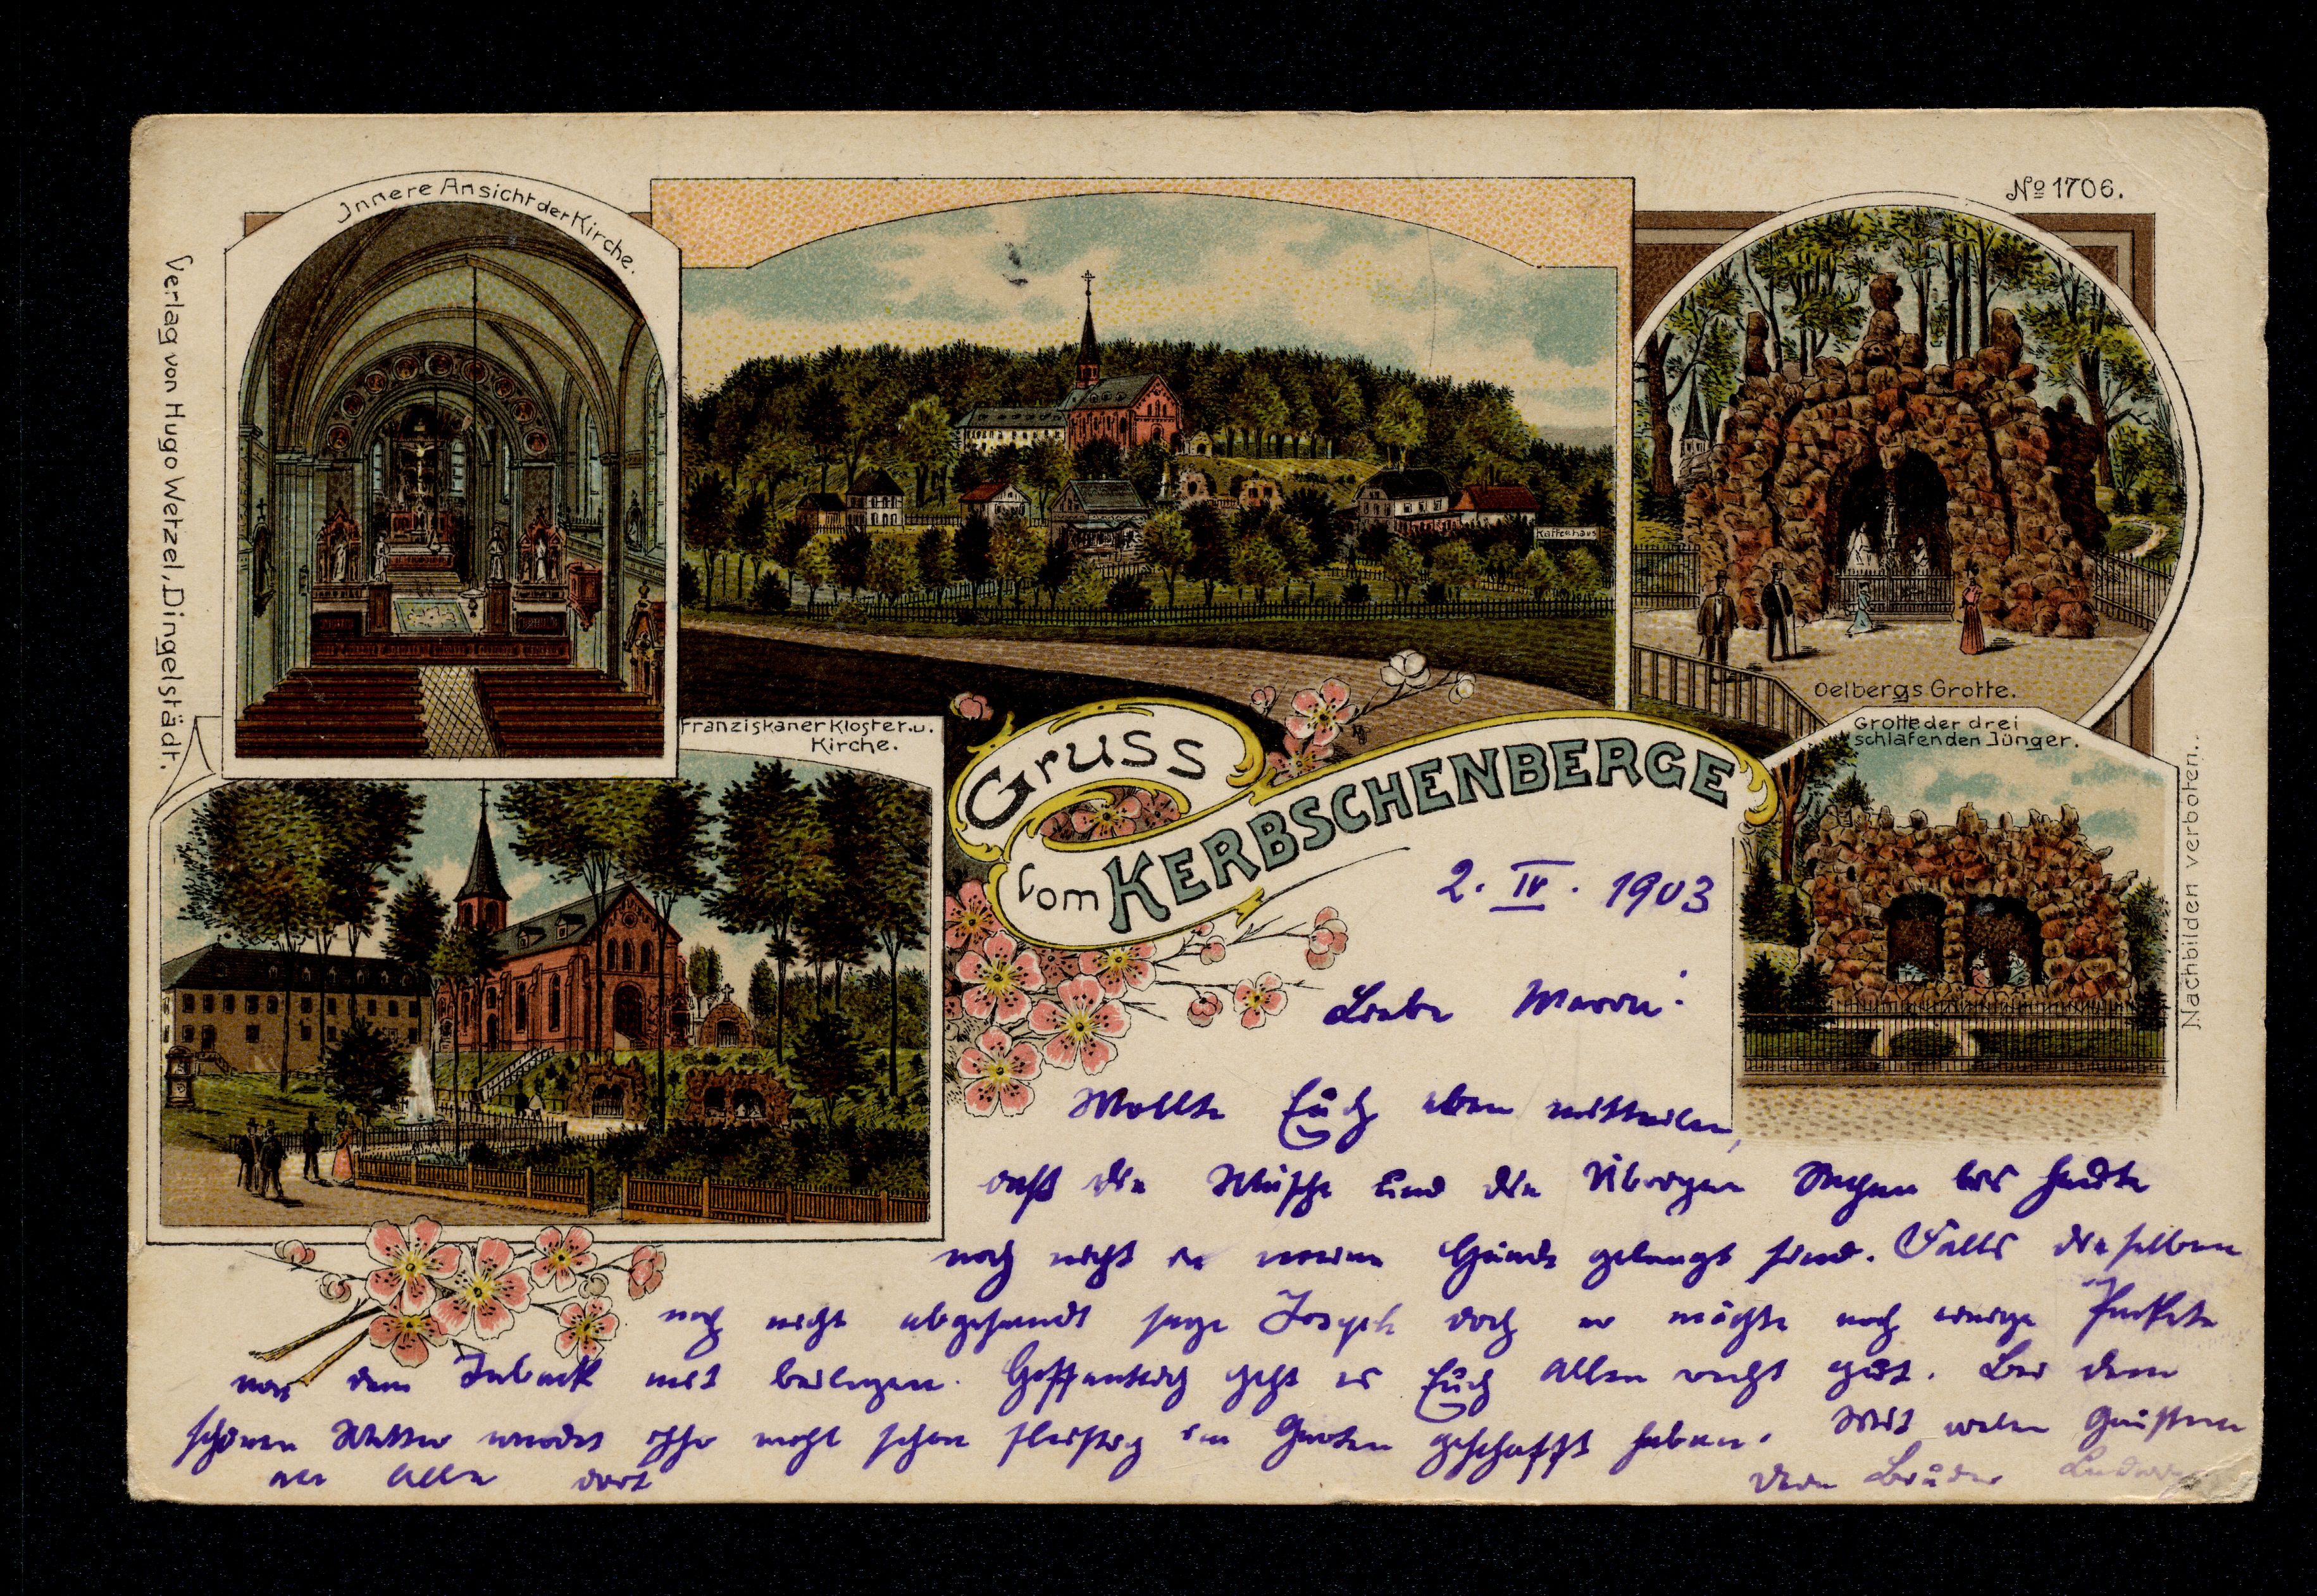 Innere Ansicht der Kirche.
No 1706.
Verlag von Hugo Wetzel, Dingelstädt.
Kaffeehaus
Oelbergs Grotte.
Franziskaner Kloster u.
Kirche.
Grotte der drei
schlafenden Jünger.
Gruss
vom KERBSCHENBERGE
Nachbilden verboten.
2. IV. 1903
Liebe
Wollte Euch eben mitteilen,
daß die Wäsche und die Übrigen Sachen bis heute
noch nicht in meine Hände gelangt sind. Falls dieselben
noch nicht abgesandt sage Joseph doch er möchte noch einige Packete
von dem Taback mit beilegen. Hoffentlich geht es Euch Allen recht gut. Bei dem
schönen Wetter werdet Ihr wohl schon fleißig im Garten geschafft haben. Mit vielen Grüßen
an Alle dort
Dein Bruder Ludwig